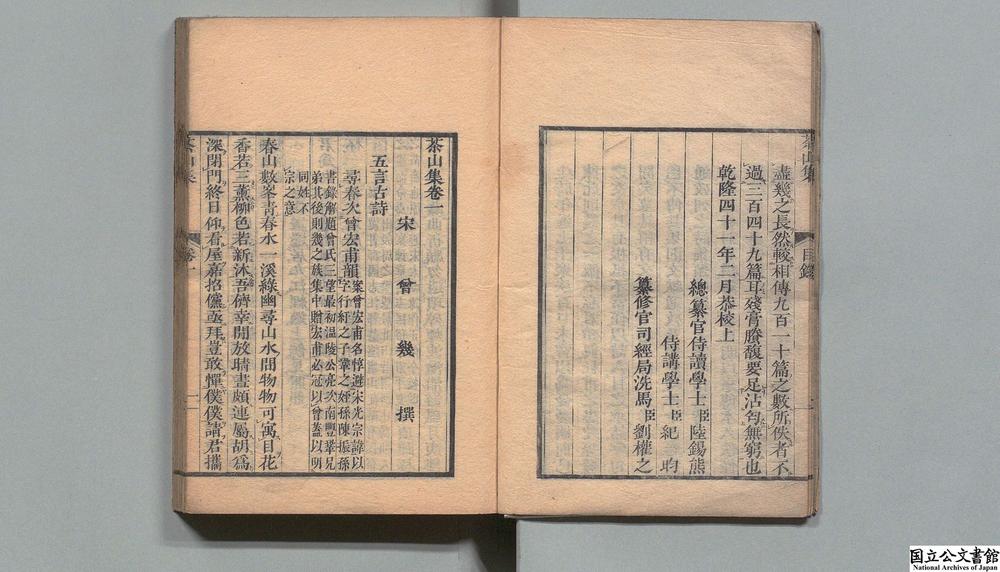 茶山集
目錄
盡幾之長然較相傳九百一十篇之數所佚者不
過三百四十九篇耳殘膏賸馥要足沾匄無窮也
乾隆四十一年二月恭校上
總纂官侍讀學士臣陸錫熊
侍講學士臣紀昀
纂修官司經局洗馬臣劉權之
茶山集卷一
宋 曾 幾 撰
五言古詩
尋春次曾宏甫韻案曾宏甫名惇避宋光宗諱以
字行紆之子鞏之姪孫陳振孫
書錄解題曾氏三望最初温陵公亮次南豐鞏兄
弟其後則幾之族集中贈宏甫必冠以曾蓋以明
同姓不
宗之意
春山數峯靑春水一溪綠幽尋山水間物物可寓目花
香若三薰柳色若新沐吾儕幸閒放晴晝頗連屬胡爲
深閉門終日仰看屋嘉招儻亟拜豈敢憚僕僕請君攜
茶山集
卷一
国立公文書館
National Archives of Japan